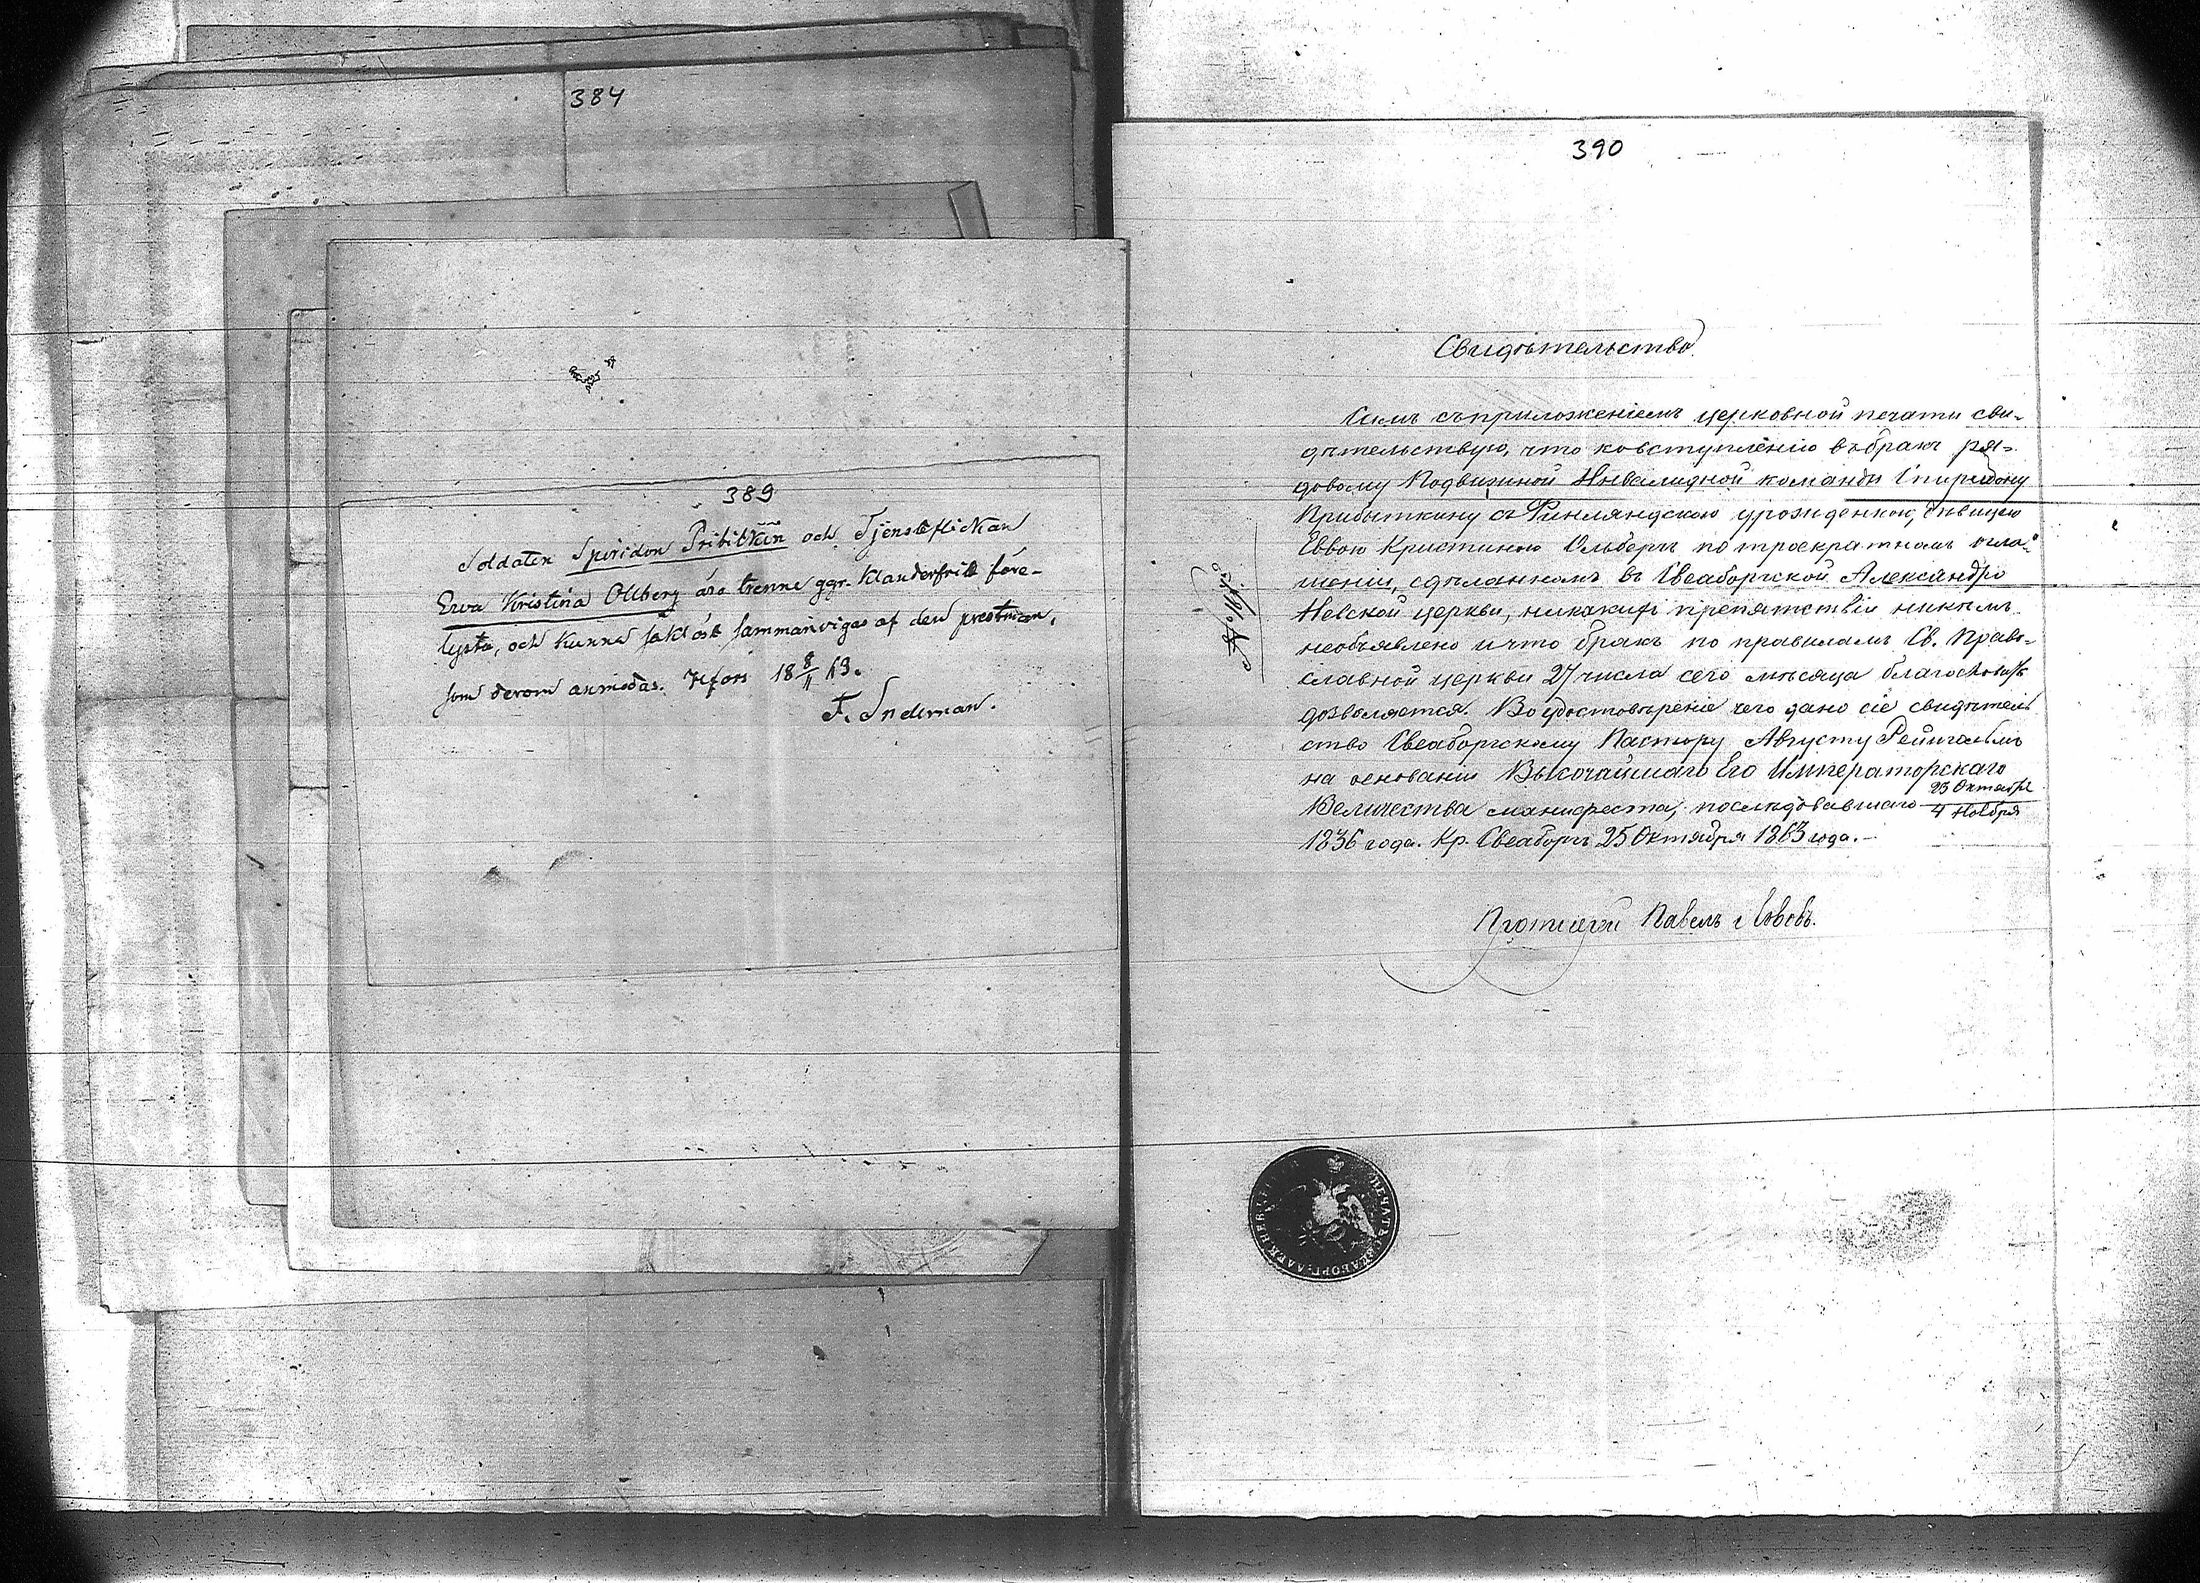 384
389
Soldaten Spiridon Pribitkin och Tjensteflickan
Ewa Kristina Ollberg äro trenne ggr. klanderfritt före-
lysta, och kunna såklöst sammanvigas af den prestman,
som derom anmodas. Hfors 18 8/11 63.
F. Inderman.
390
Свидѣтельство.
Симъ съ приложеніемъ церковной печати сви-
дѣтельствую, что ко вступленію въ бракъ ря-
довому Подвижной Инвалидной команды Спиридону
Прибыткину съ Финляндскою урожденкою, дѣвицею
Еввою Кристиною Ольбергъ по троекратномъ огла-
шеніи, сдѣланномъ въ Свеаборгской Александро
Невской церкви, никакихъ препятствій никѣмъ
необъявлено и что бракъ по правиламъ Св. Право-
славной церкви 27 числа сего мѣсяца благословить
дозволяется. Во удостовѣреніе чего дано сіе свидѣтель
ство Свеаборгскому Пастору Августу
на основаніи Высочайшаго Его Императорскаго
Величества манифеста, послѣдовавшаго 23 Октября / 4 Ноября
1836 года. Кр. Свеаборгъ 25 Октября 1863 года.-
Протоіерей Павелъ Львовъ.
ПЕЧАТЬ СВЕАБОРГ. АЛЕК. НЕВСК.